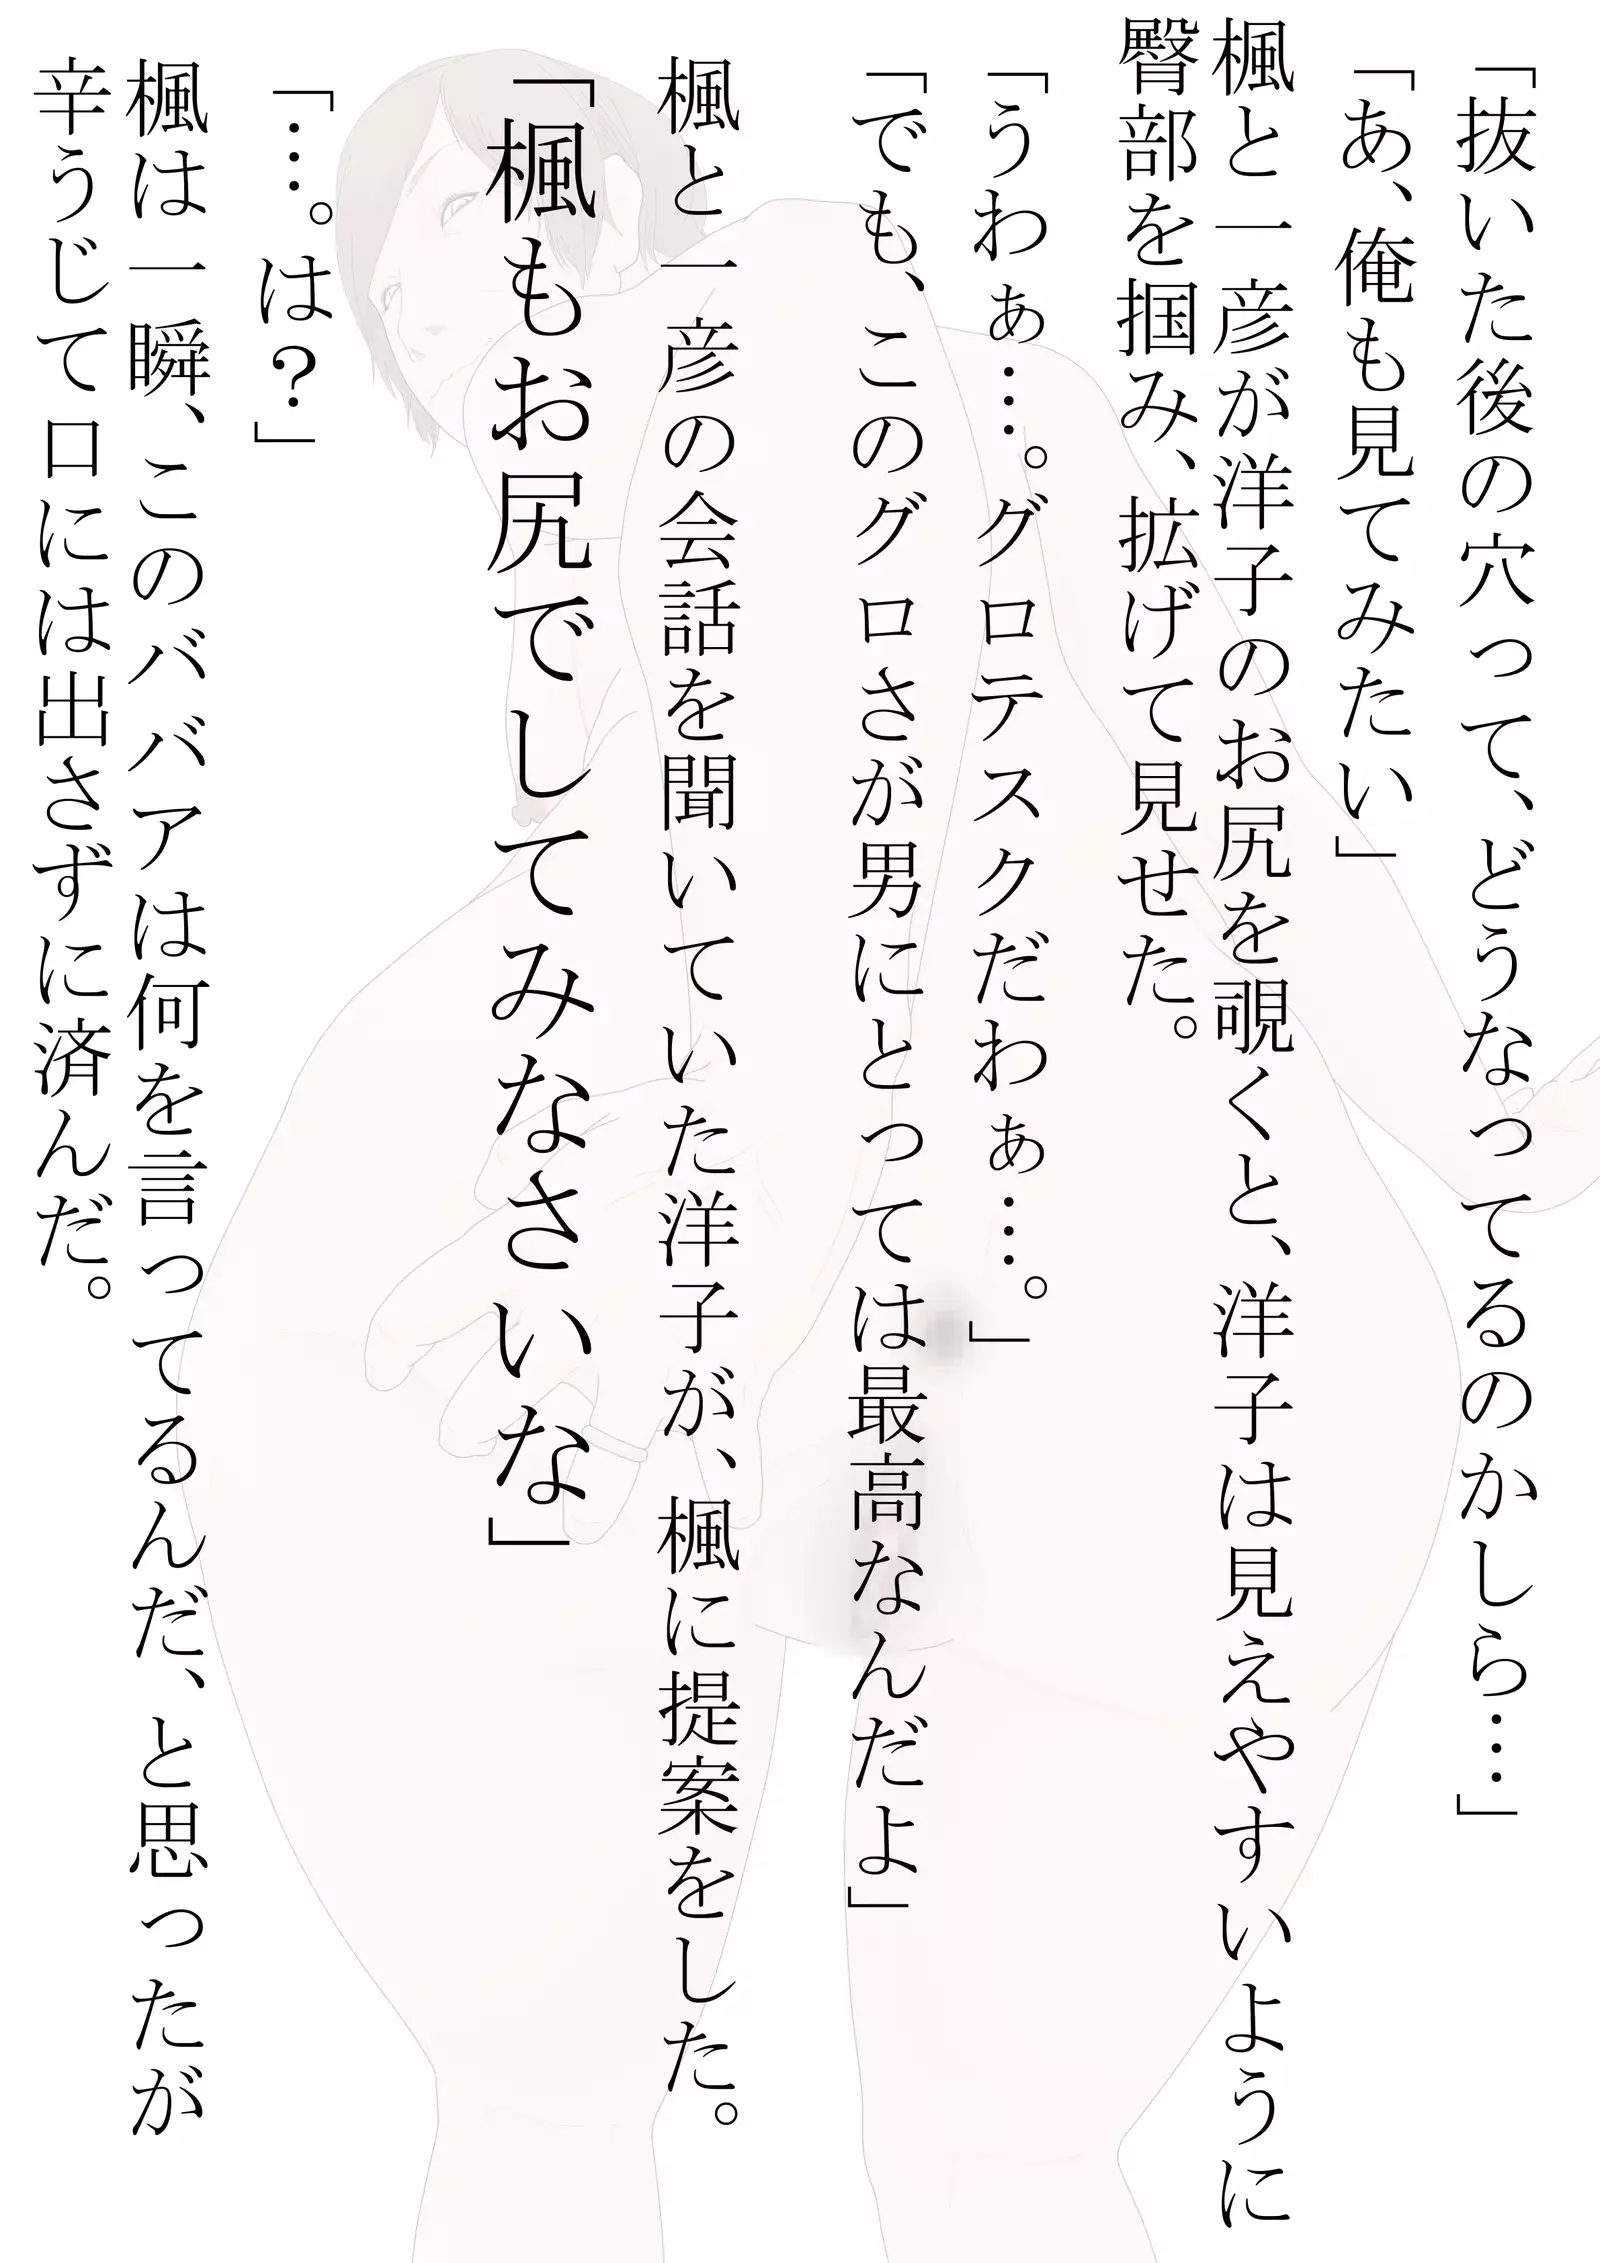 「抜いた後の穴って、どうなってるのかしら…」
「あ、俺も見てみたい」
楓と一彦が洋子のお尻を覗くと、洋子は見えやすいように
臀部を掴み、拡げて見せた。
「うわぁ…。グロテスクだわぁ…。」
「でも、このグロさが男にとっては最高なんだよ」
楓と一彦の会話を聞いていた洋子が、楓に提案をした。
「楓もお尻でしてみなさいな」
「…。は？」
楓は一瞬、このババアは何を言ってるんだ、と思ったが
辛うじて口には出さずに済んだ。